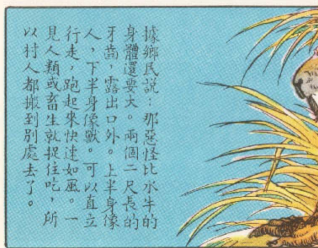 據鄉民說：那惡怪比水牛的
身體還要大。兩個二尺長的
牙齒，露出口外。上半身像
人，下半身像獸。可以直立
行走，跑起來快速如風。一
見人類或畜生就捉住吃，所
以村人都搬到別處去了。